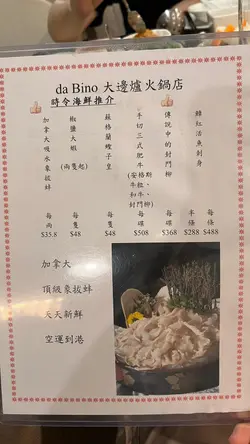 da Bino 大邊爐火鍋店
時令海鮮推介
加拿大吸水象拔蚌
每兩
$35.8
椒鹽大蝦
(兩隻起)
每隻
$48
蘇格蘭蟶子皇
每隻
$48
手切三式肥牛
(安格斯牛粒、和牛、封門柳)
每碟
$508
傳說中的封門柳
每碟
$368
活魚刺身
半條
$288
每條
$488
加拿大
頂級象拔蚌
天天新鮮
空運到港